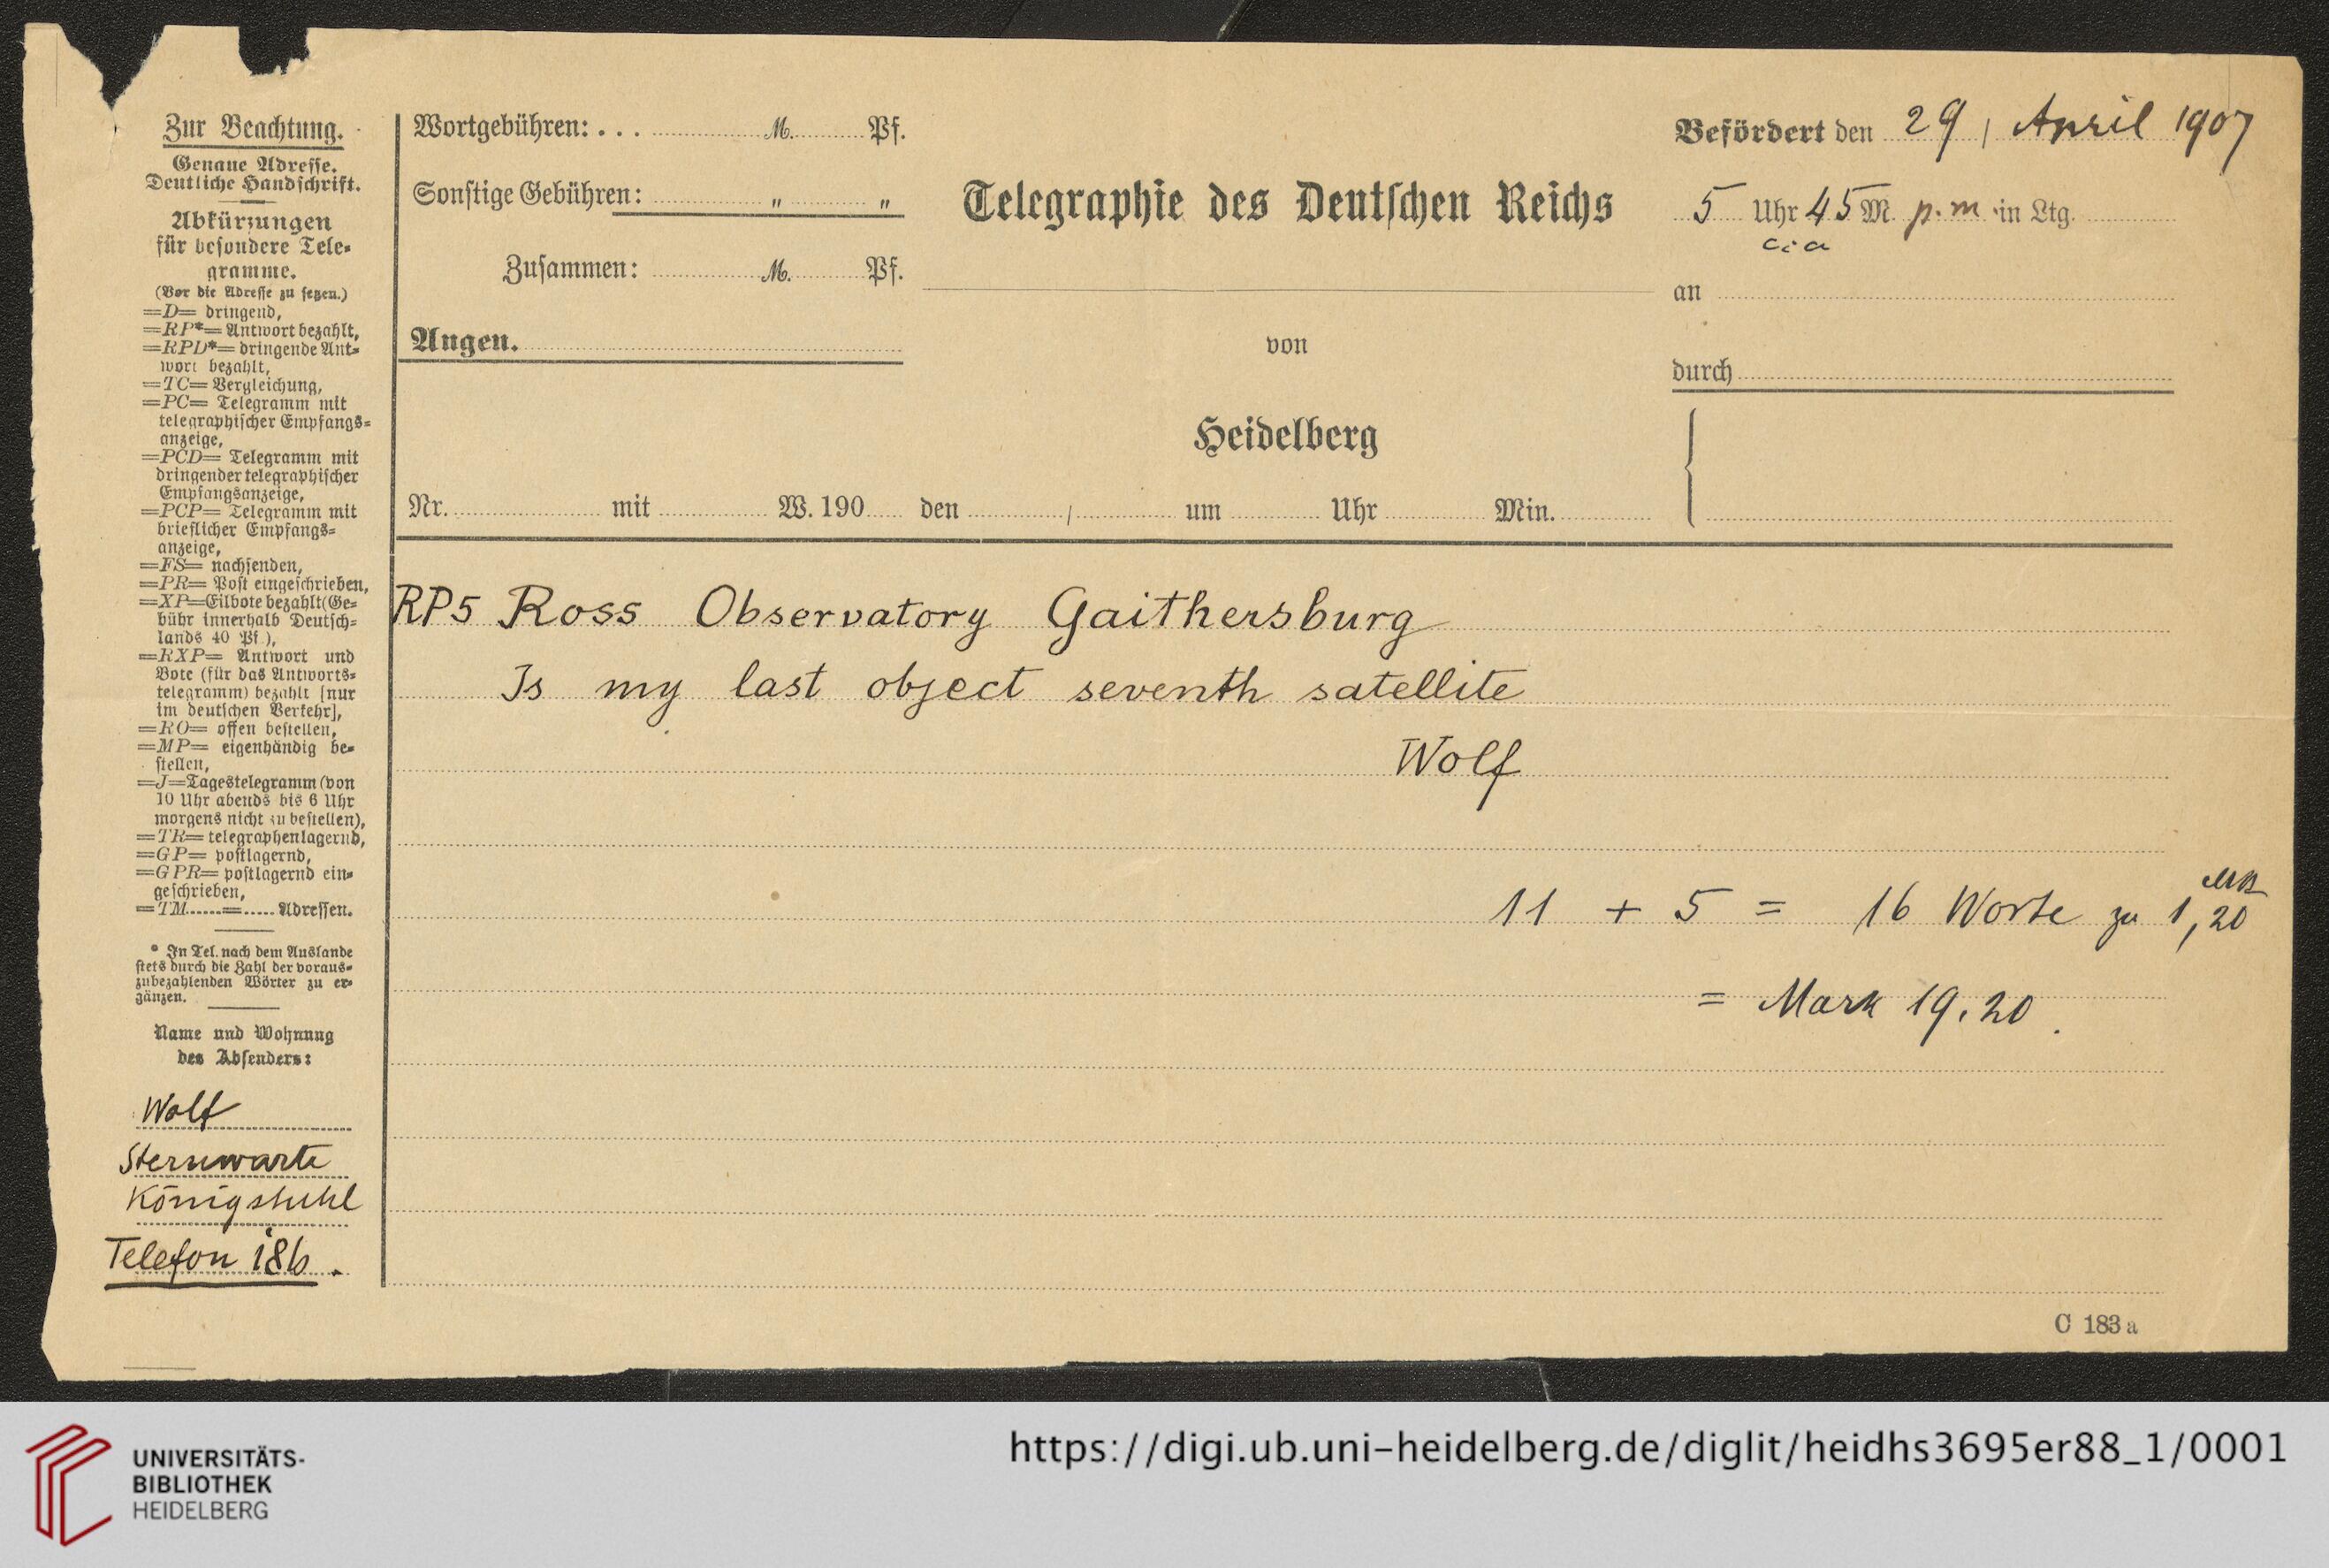 Zur Beachtung.
Genaue Adresse.
Deutliche Handschrift.
Abkürzungen
für besondere Tele-
gramme.
(Vor die Adresse zu setzen.)
=D= dringend,
=RP*= Antwort bezahlt,
=RPD*= dringende Ant-
wort bezahlt,
=TC= Vergleichung,
=PC= Telegramm mit
telegraphischer Empfangs-
anzeige,
=PCD= Telegramm mit
dringender telegraphischer
Empfangsanzeige,
=PCP= Telegramm mit
brieflicher Empfangs-
anzeige,
=FS= nachsenden,
=PR= Post eingeschrieben,
=XP=Eilbote bezahlt(Ge-
bühr innerhalb Deutsch-
lands 40 Pf.),
=RXP= Antwort und
Bote (für das Antworts-
telegramm) bezahlt [nur
im deutschen Verkehr],
=RO= offen bestellen,
=MP= eigenhändig be-
stellen,
=J=Tagestelegramm (von
10 Uhr abends bis 6 Uhr
morgens nicht zu bestellen),
=TR= telegraphenlagernd,
=GP= postlagernd,
=GPR= postlagernd ein-
geschrieben,
=TM......=..... Adressen.
* In Tel. nach dem Auslande
stets durch die Zahl der voraus-
zubezahlenden Wörter zu er-
gänzen.
Name und Wohnung
des Absenders:
Wolf
Sternwarte
Königstuhl
Telefon 186.
Wortgebühren: . . . M. Pf.
Sonstige Gebühren: " "
Zusammen: M. Pf.
Angen.
Telegraphie des Deutschen Reichs
von
Heidelberg
Befördert den 29 / April 1907
5 Uhr 45 M. p. m. in Ltg.
an
durch
Nr. mit W. 190 den / um Uhr Min.
RP5 Ross Observatory Gaithersburg
Is my last object seventh satellite
Wolf
11 + 5 = 16 Worte zu 1,20
= Mark 19.20.
C 183 a
UNIVERSITÄTS-
BIBLIOTHEK
HEIDELBERG
https://digi.ub.uni-heidelberg.de/diglit/heidhs3695er88_1/0001